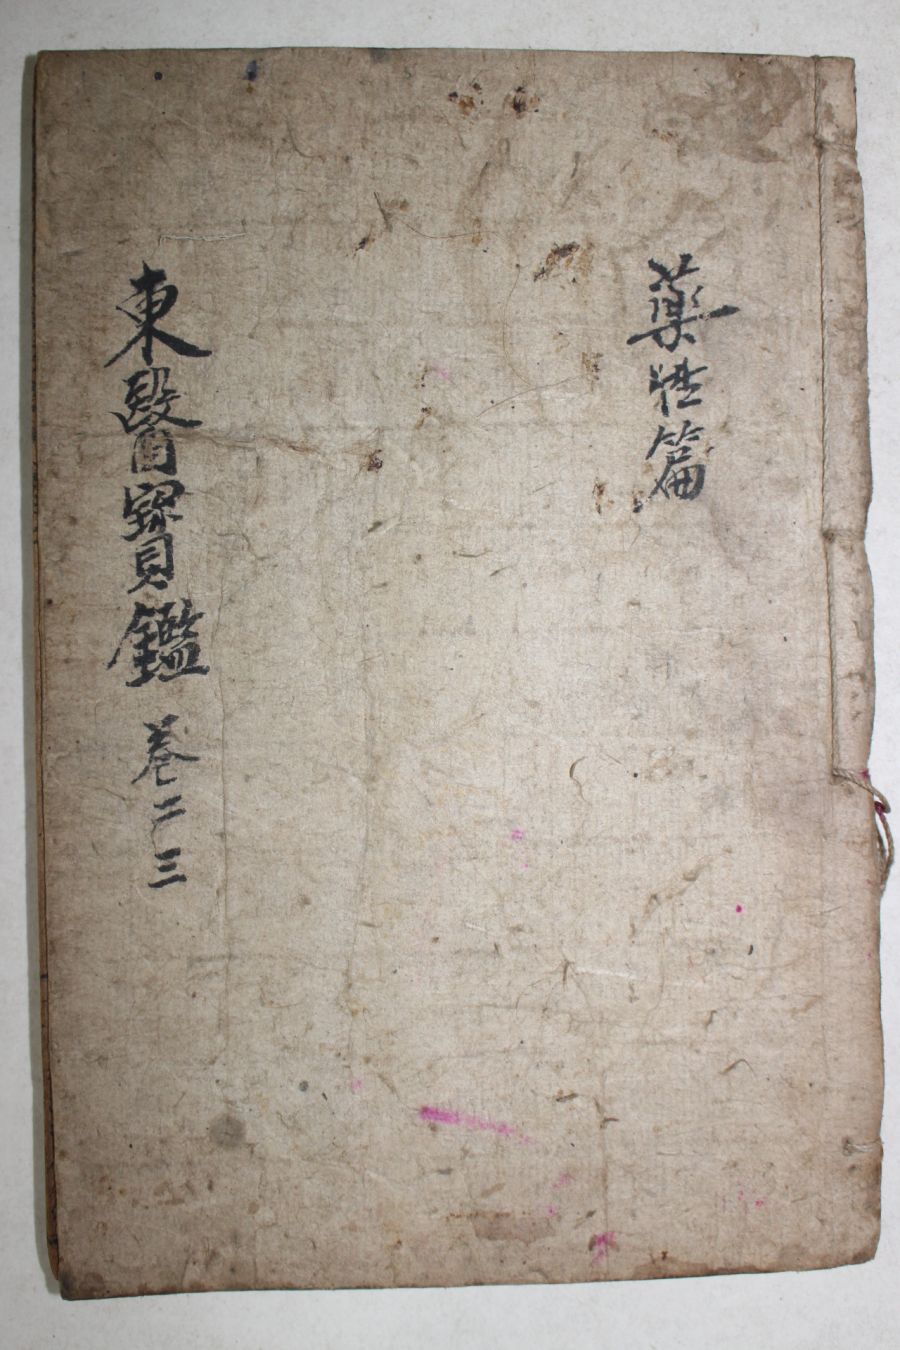 藥性篇
東醫寶鑑 卷二三